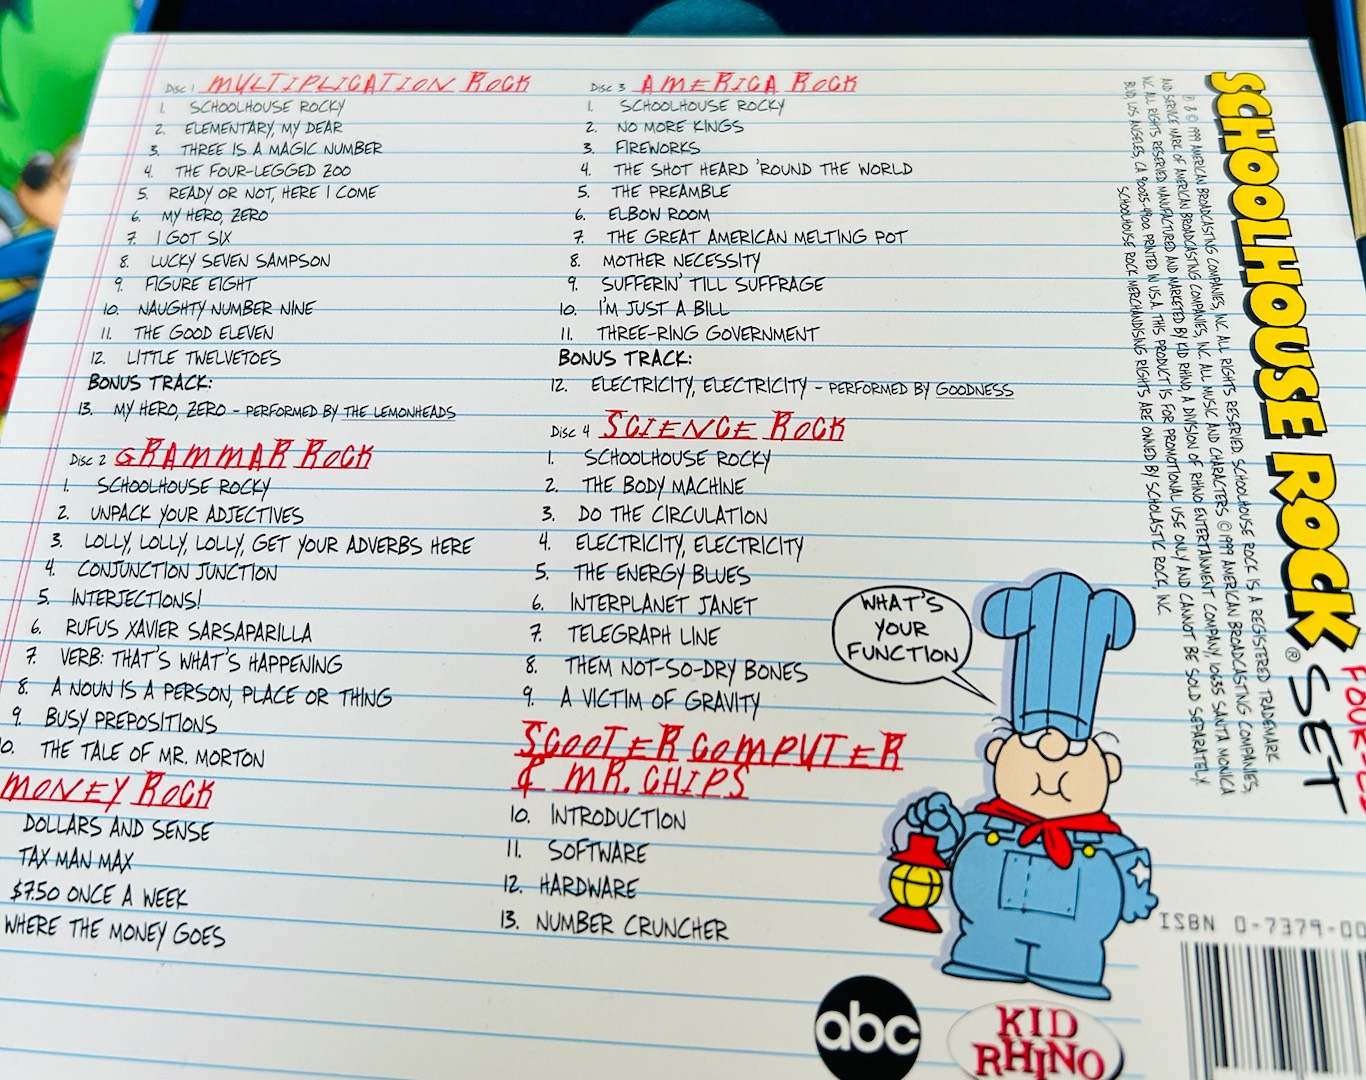 Disc 1 MULTIPLICATION ROCK
1. SCHOOLHOUSE ROCKY
2. ELEMENTARY, MY DEAR
3. THREE IS A MAGIC NUMBER
4. THE FOUR-LEGGED ZOO
5. READY OR NOT, HERE I COME
6. MY HERO, ZERO
7. I GOT SIX
8. LUCKY SEVEN SAMPSON
9. FIGURE EIGHT
10. NAUGHTY NUMBER NINE
11. THE GOOD ELEVEN
12. LITTLE TWELVETOES
BONUS TRACK:
13. MY HERO, ZERO - PERFORMED BY THE LEMONHEADS
Disc 2 GRAMMAR ROCK
1. SCHOOLHOUSE ROCKY
2. UNPACK YOUR ADJECTIVES
3. LOLLY, LOLLY, LOLLY, GET YOUR ADVERBS HERE
4. CONJUNCTION JUNCTION
5. INTERJECTIONS!
6. RUFUS XAVIER SARSAPARILLA
7. VERB: THAT'S WHAT'S HAPPENING
8. A NOUN IS A PERSON, PLACE OR THING
9. BUSY PREPOSITIONS
0. THE TALE OF MR. MORTON
MONEY ROCK
DOLLARS AND SENSE
TAX MAN MAX
$7.50 ONCE A WEEK
WHERE THE MONEY GOES
Disc 3 AMERICA ROCK
1. SCHOOLHOUSE ROCKY
2. NO MORE KINGS
3. FIREWORKS
4. THE SHOT HEARD 'ROUND THE WORLD
5. THE PREAMBLE
6. ELBOW ROOM
7. THE GREAT AMERICAN MELTING POT
8. MOTHER NECESSITY
9. SUFFERIN' TILL SUFFRAGE
10. I'M JUST A BILL
11. THREE-RING GOVERNMENT
BONUS TRACK:
12. ELECTRICITY, ELECTRICITY - PERFORMED BY GOODNESS
Disc 4 SCIENCE ROCK
1. SCHOOLHOUSE ROCKY
2. THE BODY MACHINE
3. DO THE CIRCULATION
4. ELECTRICITY, ELECTRICITY
5. THE ENERGY BLUES
6. INTERPLANET JANET
7. TELEGRAPH LINE
8. THEM NOT-SO-DRY BONES
9. A VICTIM OF GRAVITY
SCOOTER COMPUTER
& MR. CHIPS
10. INTRODUCTION
11. SOFTWARE
12. HARDWARE
13. NUMBER CRUNCHER
WHAT'S
YOUR
FUNCTION
abc
KID
RHINO
SCHOOLHOUSE ROCK® SET
℗ & © 1999 AMERICAN BROADCASTING COMPANIES, INC. ALL RIGHTS RESERVED. SCHOOLHOUSE ROCK IS A REGISTERED TRADEMARK
AND SERVICE MARK OF AMERICAN BROADCASTING COMPANIES, INC. ALL MUSIC AND CHARACTERS © 1999 AMERICAN BROADCASTING COMPANIES,
INC. ALL RIGHTS RESERVED. MANUFACTURED AND MARKETED BY KID RHINO, A DIVISION OF RHINO ENTERTAINMENT COMPANY, 10635 SANTA MONICA
BLVD. LOS ANGELES, CA 90025-4900. PRINTED IN U.S.A. THIS PRODUCT IS FOR PROMOTIONAL USE ONLY AND CANNOT BE SOLD SEPARATELY.
SCHOOLHOUSE ROCK MERCHANDISING RIGHTS ARE OWNED BY SCHOLASTIC ROCK, INC.
ISBN 0-7379-00